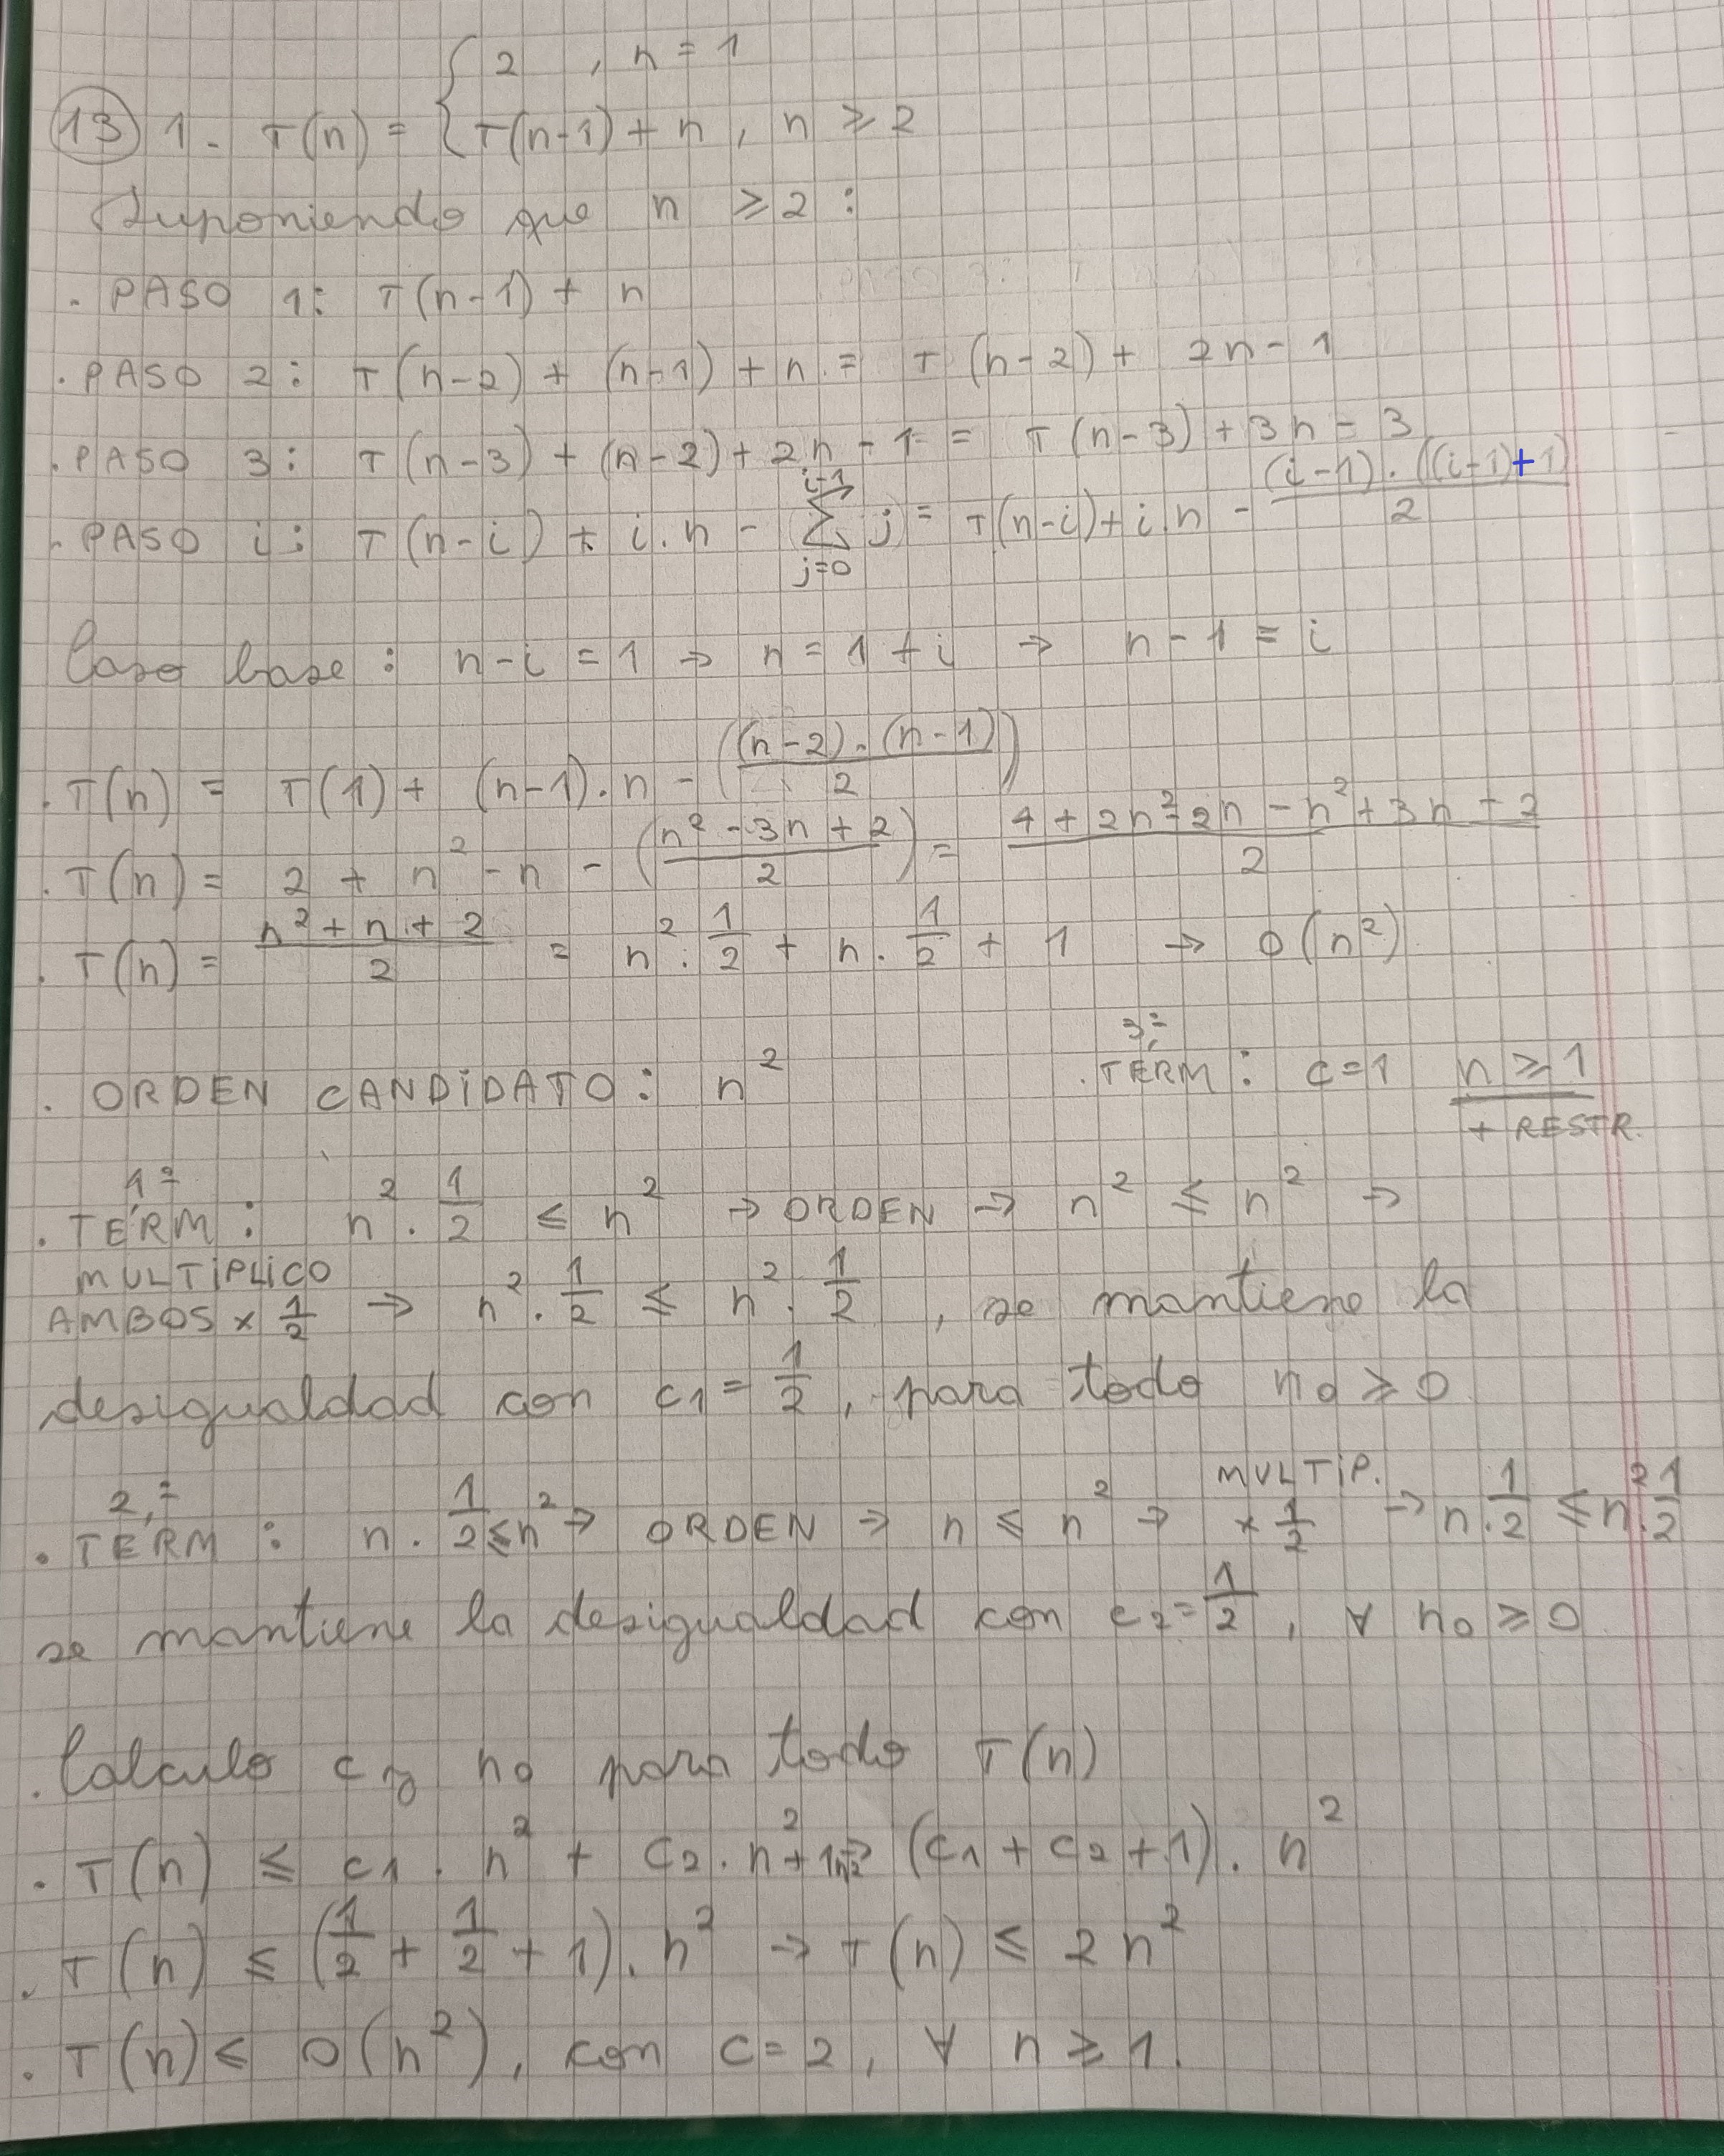 13) 1- T(n) = { 2 , n = 1
T(n-1) + n , n ≥ 2
Suponiendo que n ≥ 2 :
. PASO 1: T(n-1) + n
. PASO 2: T(n-2) + (n-1) + n = T(n-2) + 2n - 1
. PASO 3: T(n-3) + (n-2) + 2n - 1 = T(n-3) + 3n - 3
. PASO i: T(n-i) + i.n - ∑_{j=0}^{i-1} j = T(n-i) + i.n - (i-1).((i-1)+1)/2
Caso base : n-i = 1 → n = 1 + i → n - 1 = i
. T(n) = T(1) + (n-1).n - ((n-2).(n-1)/2)
. T(n) = 2 + n² - n - ((n² - 3n + 2)/2) = (4 + 2n² - 2n - n² + 3n - 2)/2
. T(n) = (n² + n + 2)/2 = n² . 1/2 + n . 1/2 + 1 → O(n²)
. ORDEN CANDIDATO : n²
. 3º TÉRM : c = 1 n ≥ 1
+ RESTR.
. 1º TÉRM : n² . 1/2 ≤ n² → ORDEN → n² ≤ n² →
MULTIPLICO
AMBOS x 1/2 → n² . 1/2 ≤ n² . 1/2 , se mantiene la
desigualdad con c₁ = 1/2 , para todo n₀ ≥ 0
. 2º TÉRM : n . 1/2 ≤ n² → ORDEN → n ≤ n² → MULTIP. x 1/2 → n . 1/2 ≤ n² . 1/2
se mantiene la desigualdad con c₂ = 1/2 , ∀ n₀ ≥ 0
. Calculo c y n₀ para todo T(n)
. T(n) ≤ c₁ . n² + c₂ . n² + 1n² → (c₁ + c₂ + 1) . n²
. T(n) ≤ (1/2 + 1/2 + 1) . n² → T(n) ≤ 2n²
. T(n) ≤ O(n²) , con c = 2 , ∀ n ≥ 1.